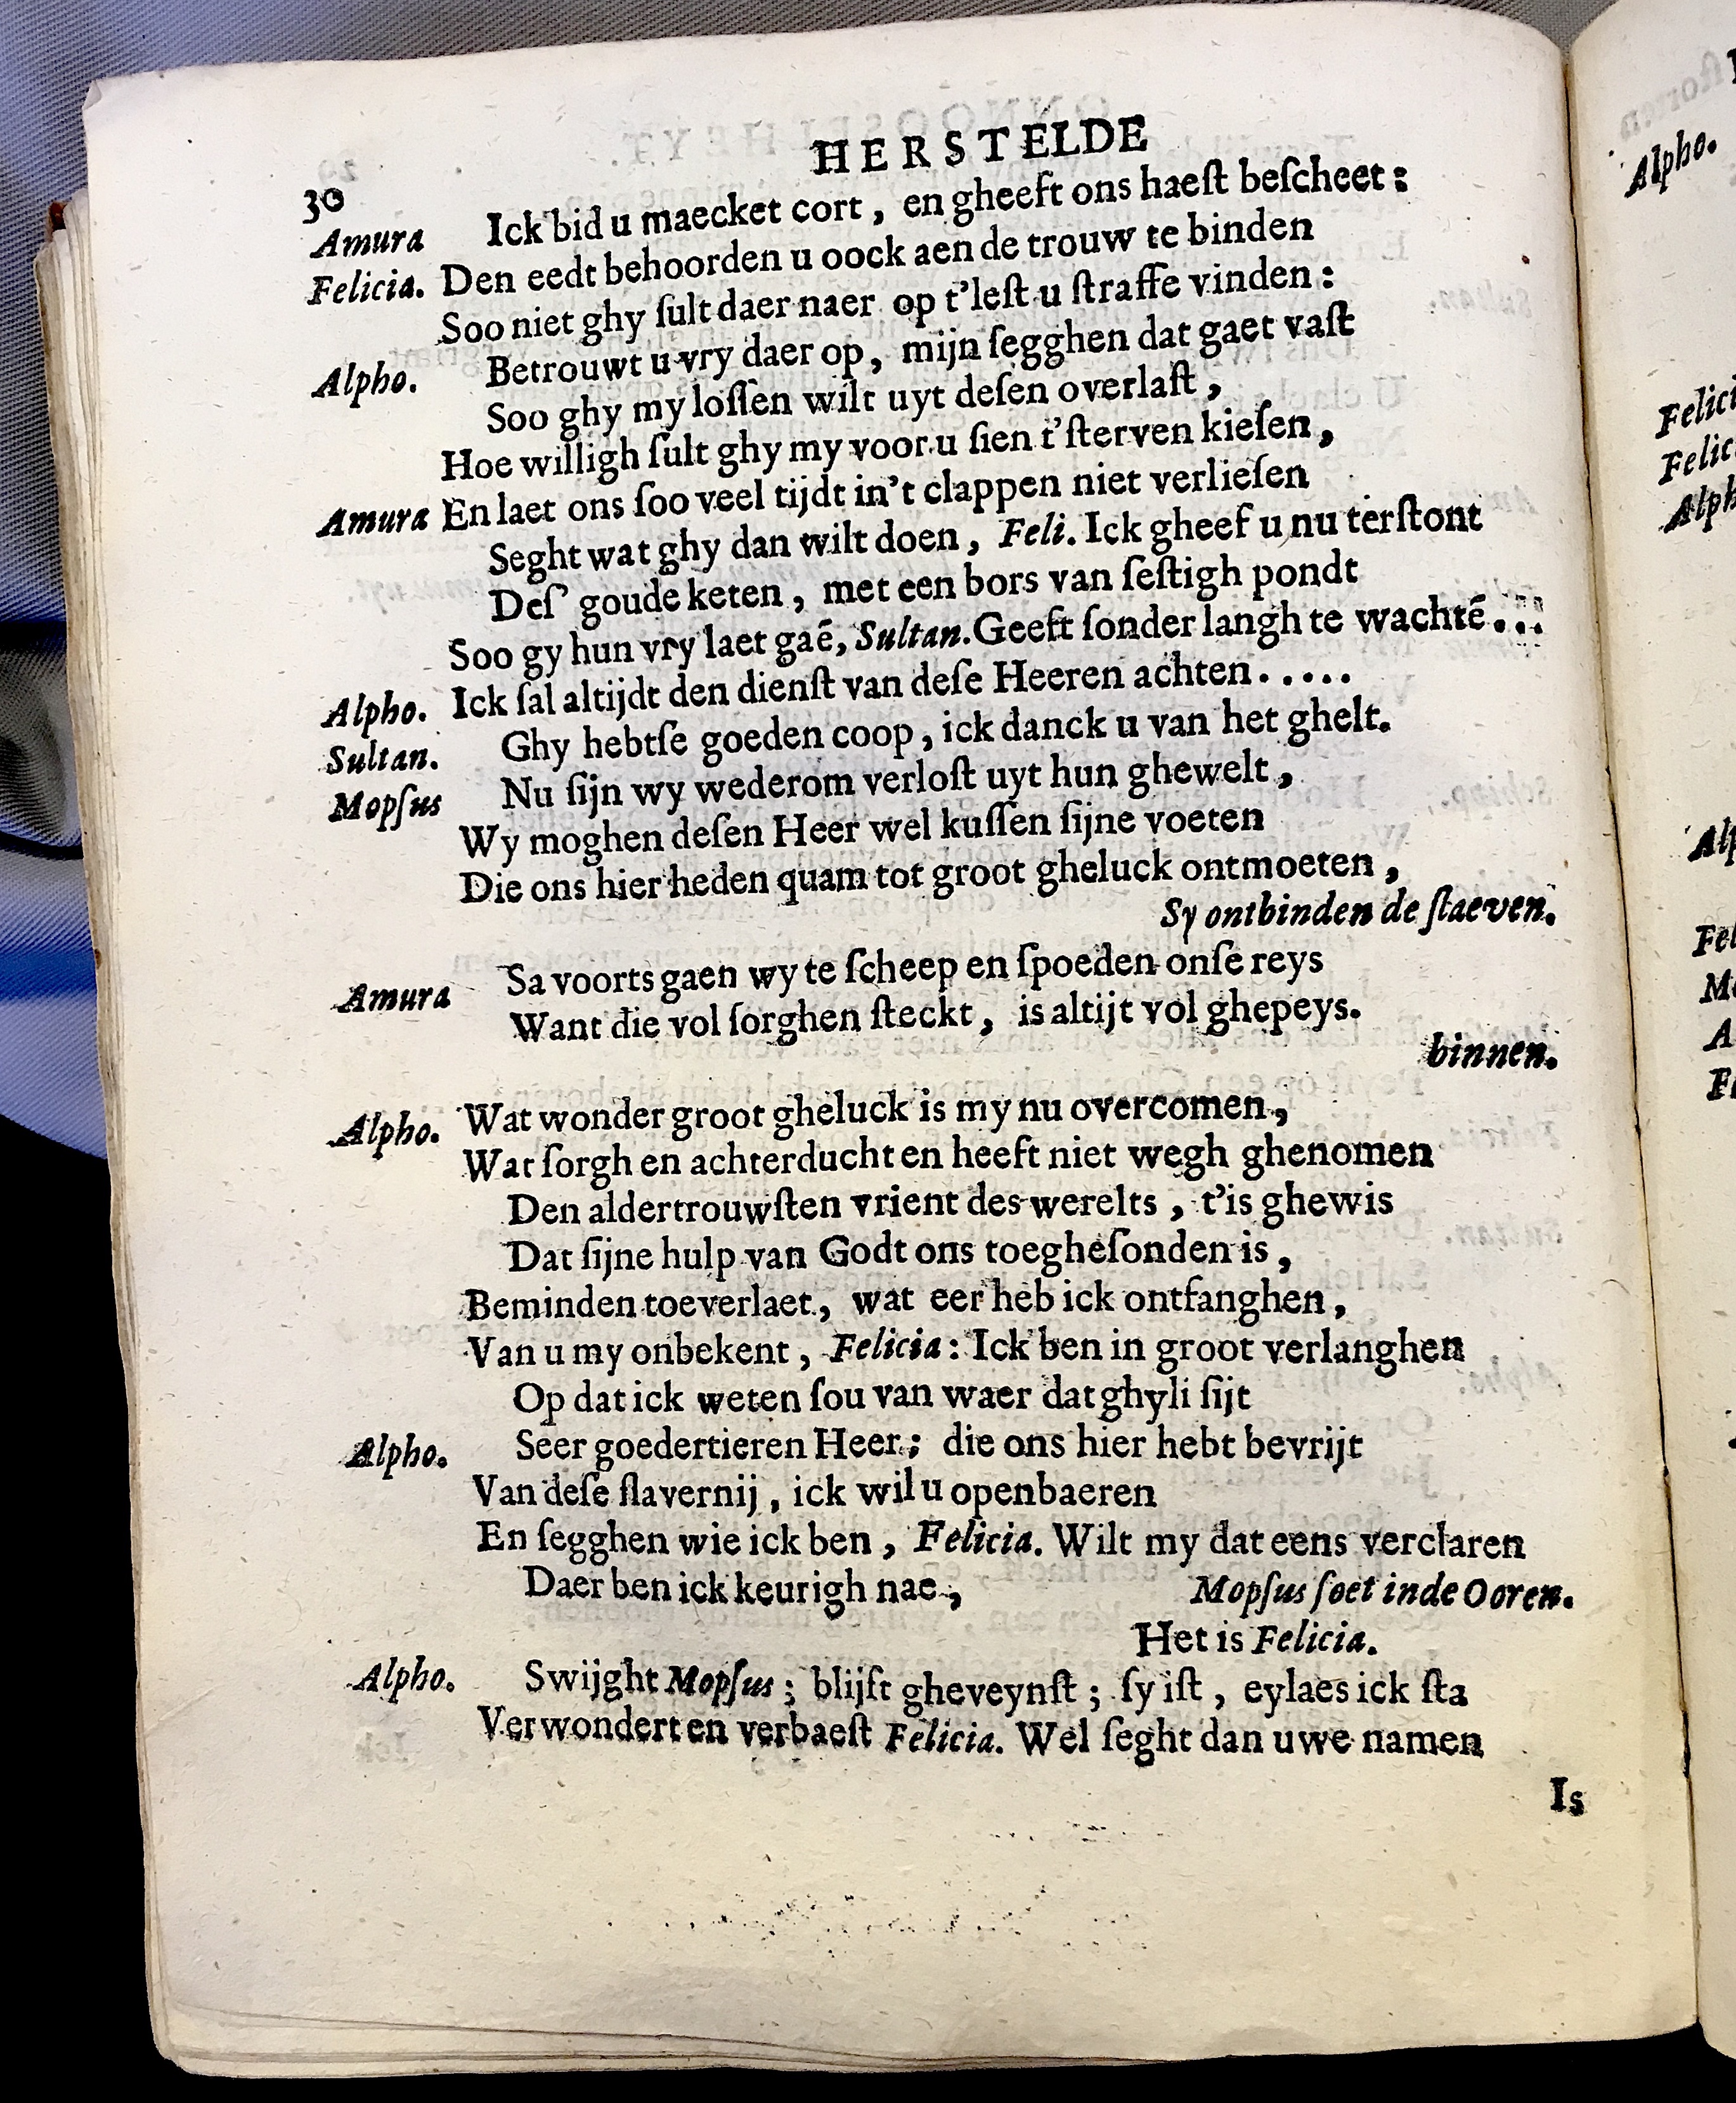 30 HERSTELDE
Amura Ick bid u maecket cort, en gheeft ons haeſt beſcheet:
Felicia. Den eedt behoorden u oock aen de trouw te binden
Soo niet ghy ſult daer naer op t'leſt u ſtraffe vinden:
Alpho. Betrouwt u vry daer op, mijn ſegghen dat gaet vaſt
Soo ghy my loſſen wilt uyt deſen overlaſt,
Hoe willigh ſult ghy my voor u ſien t'ſterven kieſen,
Amura En laet ons ſoo veel tijdt in't clappen niet verlieſen
Seght wat ghy dan wilt doen, Feli. Ick gheef u nu terſtont
Deſ' goude keten, met een bors van ſeſtigh pondt
Soo gy hun vry laet gaē, Sultan. Geeft ſonder langh te wachtē...
Alpho. Ick ſal altijdt den dienſt van deſe Heeren achten.....
Sultan. Ghy hebtſe goeden coop, ick danck u van het ghelt.
Mopſus Nu ſijn wy wederom verloſt uyt hun ghewelt,
Wy moghen deſen Heer wel kuſſen ſijne voeten
Die ons hier heden quam tot groot gheluck ontmoeten,
Sy ontbinden de ſlaeven.
Amura Sa voorts gaen wy te ſcheep en ſpoeden onſe reys
Want die vol ſorghen ſteckt, is altijt vol ghepeys.
binnen.
Alpho. Wat wonder groot gheluck is my nu overcomen,
Wat ſorgh en achterducht en heeft niet wegh ghenomen
Den aldertrouwſten vrient des werelts, t'is ghewis
Dat ſijne hulp van Godt ons toegheſonden is,
Beminden toeverlaet, wat eer heb ick ontfanghen,
Van u my onbekent, Felicia: Ick ben in groot verlanghen
Op dat ick weten ſou van waer dat ghyli ſijt
Alpho. Seer goedertieren Heer; die ons hier hebt bevrijt
Van deſe ſlavernij, ick wil u openbaeren
En ſegghen wie ick ben, Felicia. Wilt my dat eens verclaren
Daer ben ick keurigh nae, Mopſus ſoet inde Ooren.
Het is Felicia.
Alpho. Swijght Mopſus; blijft gheveynſt; ſy iſt, eylaes ick ſta
Verwondert en verbaeſt Felicia. Wel ſeght dan uwe namen
Is
Alpho.